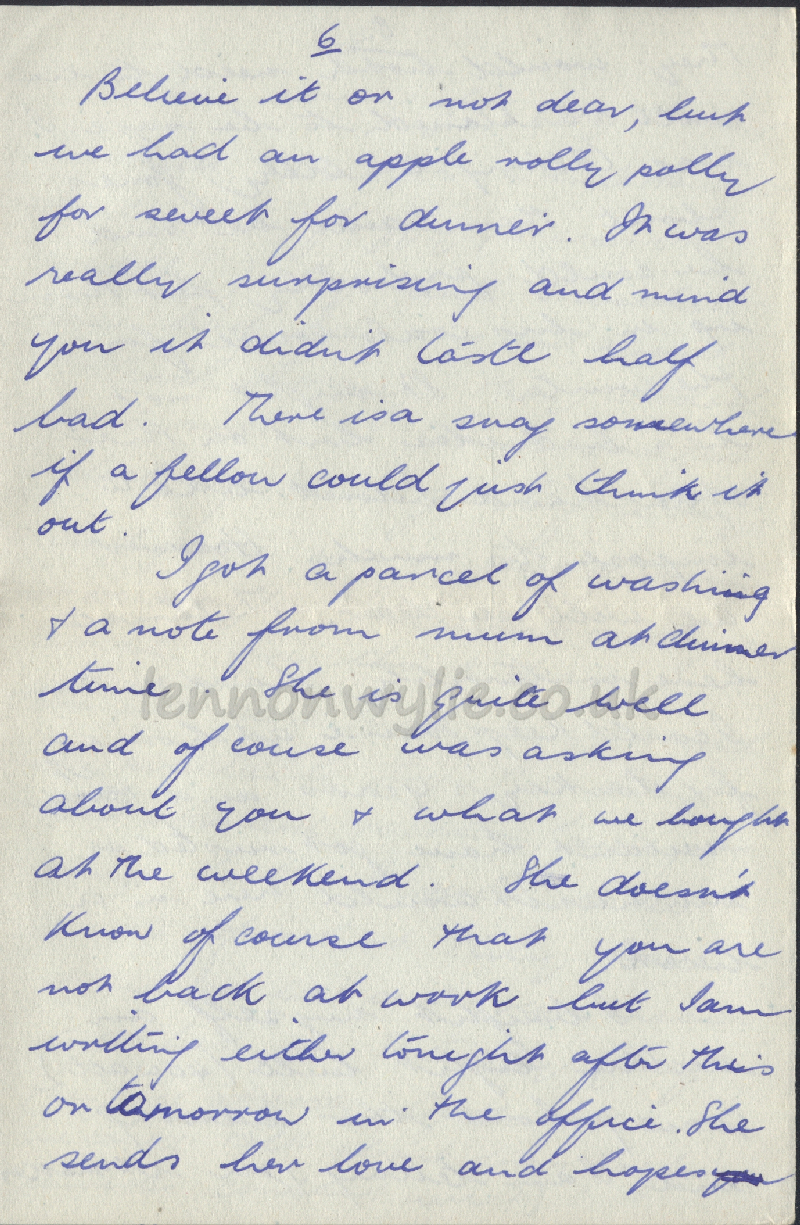 6
Believe it or not dear, but
we had an apple rolly polly
for sweet for dinner. It was
really surprising and mind
you it didn't taste half
bad. There is a snag somewhere
if a fellow could just think it
out.
I got a parcel of washing
& a note from mum at dinner
time. She is quite well
and of couse was asking
about you & what we bought
at the weekend. She doesn't
know of course that you are
not back at work but I am
writing either tonight after this
or tomorrow in the office. She
sends her love and hopes
lennonwylie.co.uk